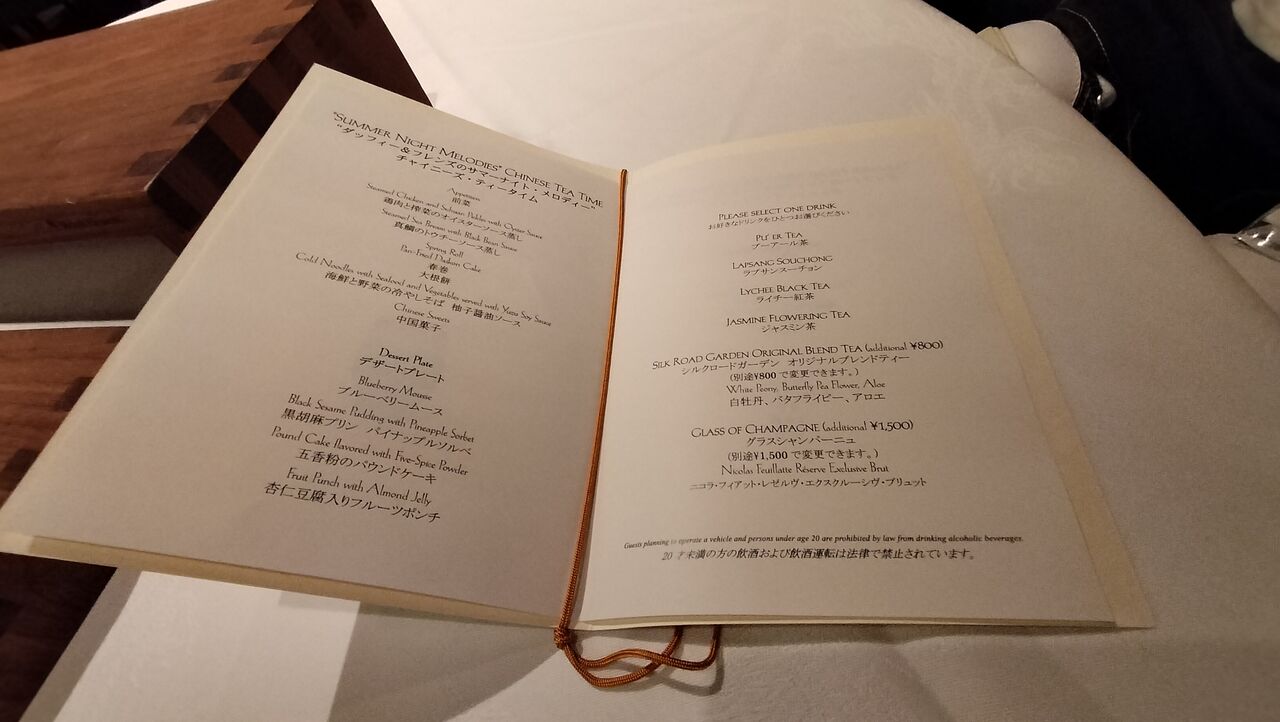 "SUMMER NIGHT MELODIES" CHINESE TEA TIME
"ダッフィー&フレンズのサマーナイト・メロディー"
チャイニーズ・ティータイム
Appetizers
前菜
Steamed Chicken and Sichuan Pickles with Oyster Sauce
鶏肉と搾菜のオイスターソース蒸し
Steamed Sea Bream with Black Bean Sauce
真鯛のトウチーソース蒸し
Spring Roll
Pan-Fried Daikon Cake
春巻
大根餅
Cold Noodles with Seafood and Vegetables served with Yuzu Soy Sauce
海鮮と野菜の冷やしそば 柚子醤油ソース
Chinese Sweets
中国菓子
Dessert Plate
デザートプレート
Blueberry Mousse
ブルーベリームース
Black Sesame Pudding with Pineapple Sorbet
黒胡麻プリン パイナップルソルベ
Pound Cake flavored with Five-Spice Powder
五香粉のパウンドケーキ
Fruit Punch with Almond Jelly
杏仁豆腐入りフルーツポンチ
PLEASE SELECT ONE DRINK
お好きなドリンクをひとつお選びください
PU' ER TEA
プーアール茶
LAPSANG SOUCHONG
ラプサンスーチョン
LYCHEE BLACK TEA
ライチー紅茶
JASMINE FLOWERING TEA
ジャスミン茶
SILK ROAD GARDEN ORIGINAL BLEND TEA (additional ¥800)
シルクロードガーデン オリジナルブレンドティー
(別途¥800 で変更できます。)
White Peony, Butterfly Pea Flower, Aloe
白牡丹、バタフライピー、アロエ
GLASS OF CHAMPAGNE (additional ¥1,500)
グラスシャンパーニュ
(別途¥1,500 で変更できます。)
Nicolas Feuillatte Réserve Exclusive Brut
ニコラ・フィアット・レゼルヴ・エクスクルーシヴ・ブリュット
Guests planning to operate a vehicle and persons under age 20 are prohibited by law from drinking alcoholic beverages.
20 才未満の方の飲酒および飲酒運転は法律で禁止されています。